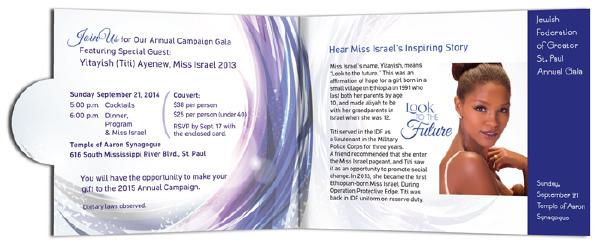 Join Us for Our Annual Campaign Gala
Featuring Special Guest:
Yitayish (Titi) Ayenew, Miss Israel 2013
Sunday September 21, 2014
5:00 p.m. Cocktails
6:00 p.m. Dinner,
Program
& Miss Israel
Couvert:
$36 per person
$25 per person (under 40)
RSVP by Sept. 17 with
the enclosed card.
Temple of Aaron Synagogue
616 South Mississippi River Blvd., St. Paul
You will have the opportunity to make your
gift to the 2015 Annual Campaign.
Dietary laws observed.
Hear Miss Israel's Inspiring Story
Miss Israel's name, Yitayish, means
"Look to the future." This was an
affirmation of hope for a girl born in a
small village in Ethiopia in 1991 who
lost both her parents by age
10, and made aliyah to be
with her grandparents in
Israel when she was 12.
Titi served in the IDF as
a lieutenant in the Military
Police Corps for three years.
A friend recommended that she enter
the Miss Israel pageant, and Titi saw
it as an opportunity to promote social
change. In 2013, she became the first
Ethiopian-born Miss Israel. During
Operation Protective Edge, Titi was
back in IDF uniform on reserve duty.
Look
TO THE
Future
Jewish
Federation
of Greater
St. Paul
Annual Gala
Sunday,
September 21
Temple of Aaron
Synagogue